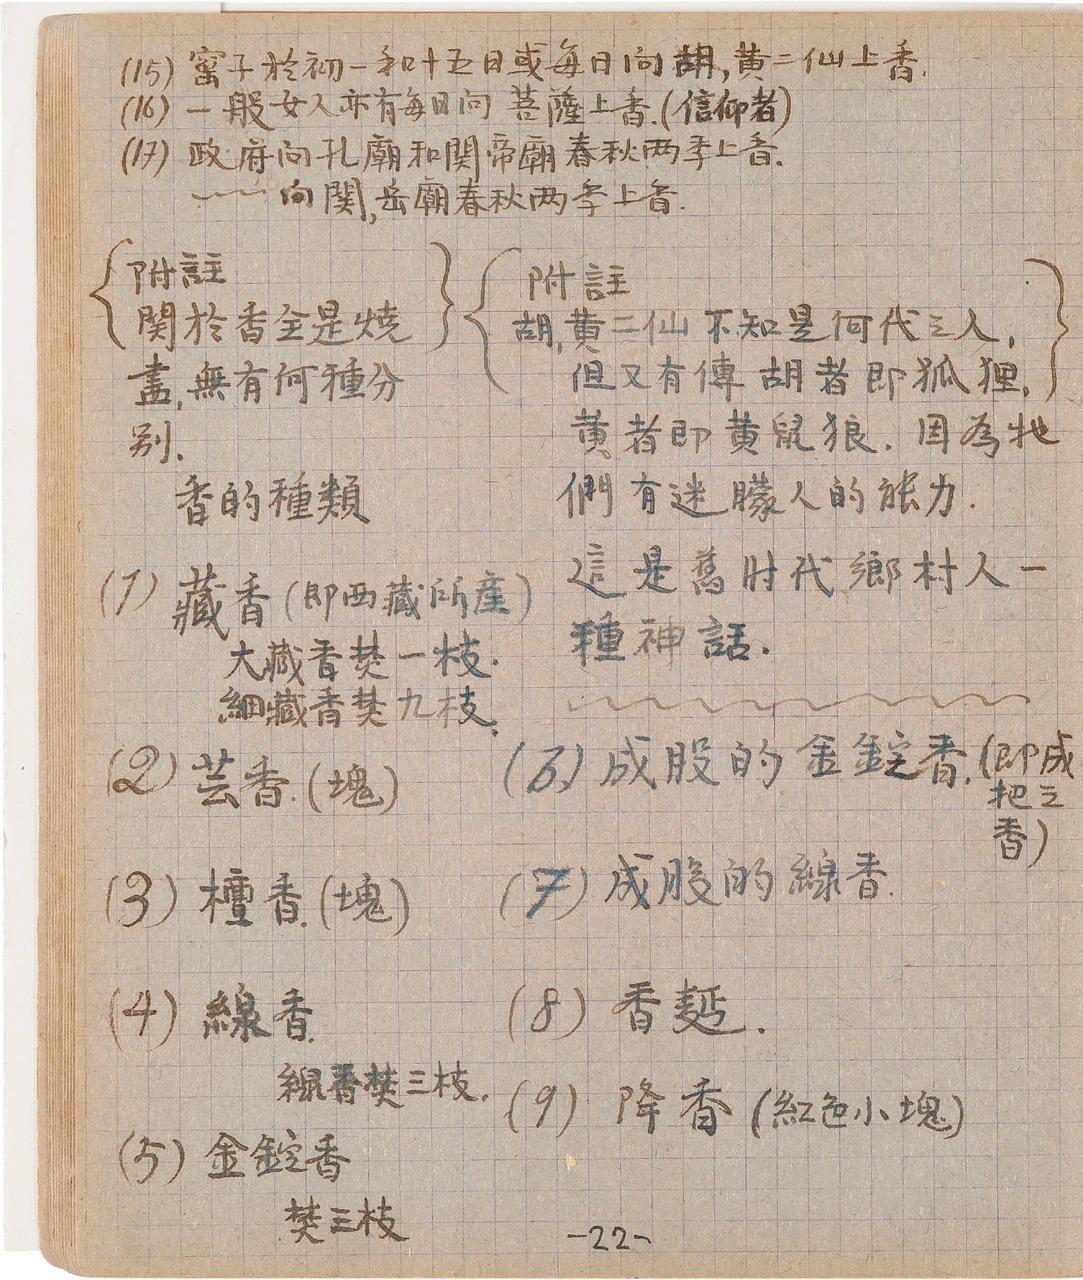 (15) 窰子於初一和十五日或每日向胡,黄二仙上香.
(16) 一般女人亦有每日向菩薩上香.(信仰者)
(17) 政府向孔廟和関帝廟春秋两季上香.
向関,岳廟春秋两季上香.
附註
関於香全是燒
盡,無有何種分
别.
附註
胡,黄二仙不知是何代之人,
但又有傳胡者即狐狸,
黄者即黄鼠狼.因為牠
們有迷矇人的能力.
這是舊时代鄉村人一
種神話.
香的種類
(1) 藏香(即西藏所產)
大藏香焚一枝.
細藏香焚九枝.
(2) 芸香.(塊)
(3) 檀香.(塊)
(4) 線香.
線香焚三枝.
(5) 金錠香
焚三枝
(6) 成股的金錠香.(即成
把之
香)
(7) 成股的線香.
(8) 香麵.
(9) 降香(紅色小塊)
-22-